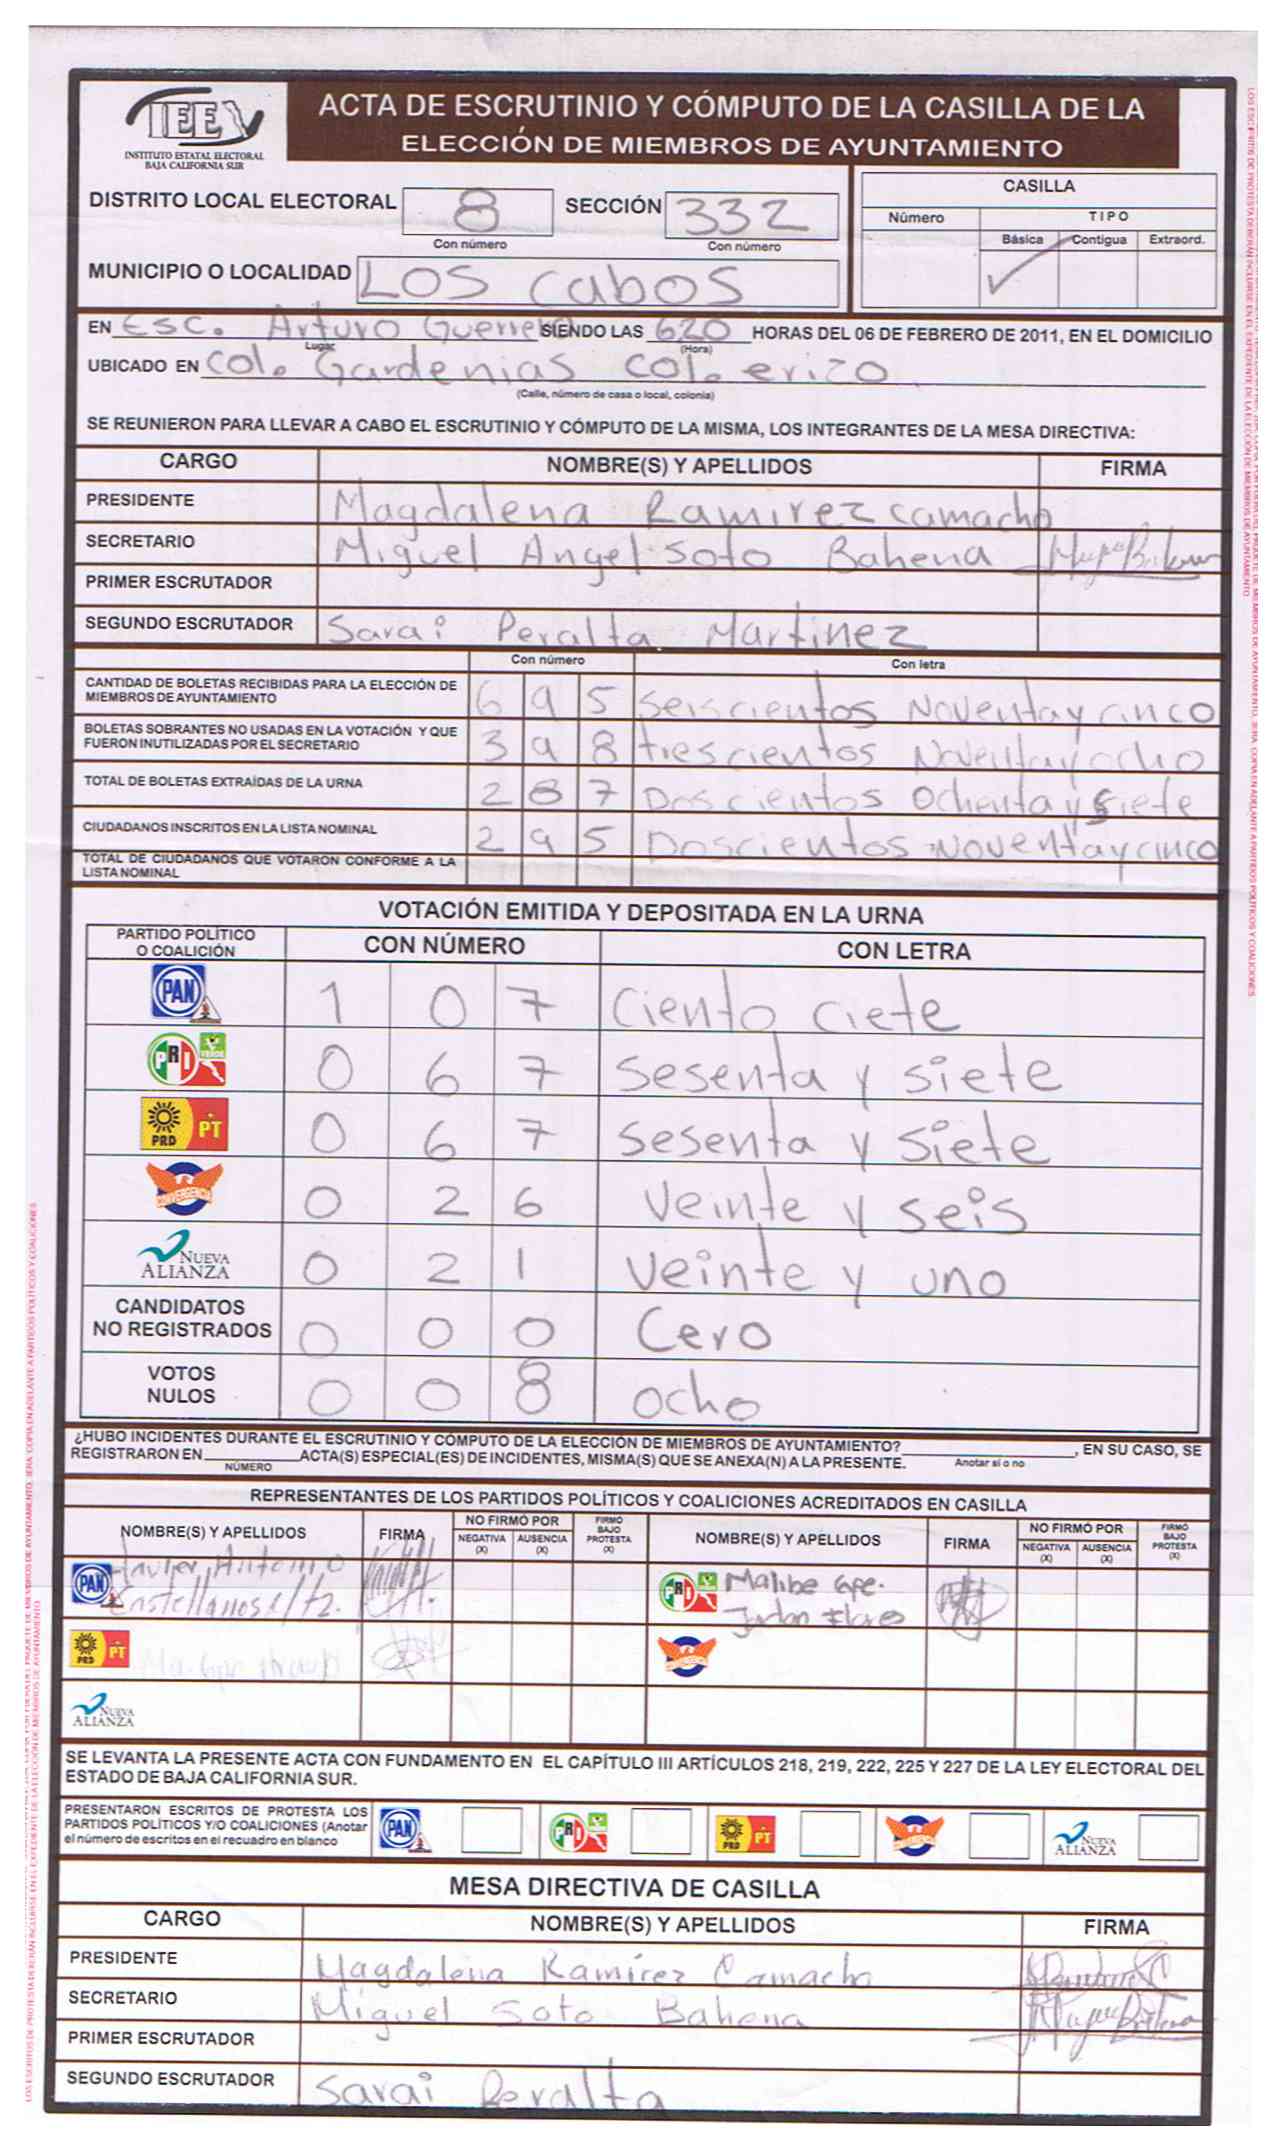 IEE
INSTITUTO ESTATAL ELECTORAL
BAJA CALIFORNIA SUR
ACTA DE ESCRUTINIO Y CÓMPUTO DE LA CASILLA DE LA
ELECCIÓN DE MIEMBROS DE AYUNTAMIENTO
DISTRITO LOCAL ELECTORAL 8 SECCIÓN 332
Con número Con número
MUNICIPIO O LOCALIDAD LOS Cabos
CASILLA
Número TIPO
Básica Contigua Extraord.
✓
EN Esc. Arturo Guerrero SIENDO LAS 620 HORAS DEL 06 DE FEBRERO DE 2011, EN EL DOMICILIO
Lugar (Hora)
UBICADO EN Col. Gardenias Col. erizo
(Calle, número de casa o local, colonia)
SE REUNIERON PARA LLEVAR A CABO EL ESCRUTINIO Y CÓMPUTO DE LA MISMA, LOS INTEGRANTES DE LA MESA DIRECTIVA:
CARGO NOMBRE(S) Y APELLIDOS FIRMA
PRESIDENTE Magdalena Ramirez camacho
SECRETARIO Miguel Angel Soto Bahena
PRIMER ESCRUTADOR
SEGUNDO ESCRUTADOR Sarai Peralta Martinez
Con número Con letra
CANTIDAD DE BOLETAS RECIBIDAS PARA LA ELECCIÓN DE
MIEMBROS DE AYUNTAMIENTO 6 9 5 Seiscientos Noventa y cinco
BOLETAS SOBRANTES NO USADAS EN LA VOTACIÓN Y QUE
FUERON INUTILIZADAS POR EL SECRETARIO 3 9 8 trescientos Noventa y ocho
TOTAL DE BOLETAS EXTRAÍDAS DE LA URNA 2 8 7 Doscientos Ochenta y siete
CIUDADANOS INSCRITOS EN LA LISTA NOMINAL 2 9 5 Doscientos Noventa y cinco
TOTAL DE CIUDADANOS QUE VOTARON CONFORME A LA
LISTA NOMINAL
VOTACIÓN EMITIDA Y DEPOSITADA EN LA URNA
PARTIDO POLÍTICO
O COALICIÓN CON NÚMERO CON LETRA
PAN 1 0 7 Ciento ciete
PRI VERDE 0 6 7 Sesenta y siete
PRD PT 0 6 7 Sesenta y siete
CONVERGENCIA 0 2 6 Veinte y seis
NUEVA ALIANZA 0 2 1 Veinte y uno
CANDIDATOS
NO REGISTRADOS 0 0 0 Cero
VOTOS
NULOS 0 0 8 ocho
¿HUBO INCIDENTES DURANTE EL ESCRUTINIO Y CÓMPUTO DE LA ELECCIÓN DE MIEMBROS DE AYUNTAMIENTO? , EN SU CASO, SE
REGISTRARON EN ACTA(S) ESPECIAL(ES) DE INCIDENTES, MISMA(S) QUE SE ANEXA(N) A LA PRESENTE. Anotar sí o no
NÚMERO
REPRESENTANTES DE LOS PARTIDOS POLÍTICOS Y COALICIONES ACREDITADOS EN CASILLA
NOMBRE(S) Y APELLIDOS FIRMA NO FIRMÓ POR NEGATIVA (X) AUSENCIA (X) FIRMÓ BAJO PROTESTA (X) NOMBRE(S) Y APELLIDOS FIRMA NO FIRMÓ POR NEGATIVA (X) AUSENCIA (X) FIRMÓ BAJO PROTESTA (X)
PAN Javier Antonio
Castellanos
PRI Malibe Gpe.
PRD PT Ma. Gpe
CONVERGENCIA
NUEVA ALIANZA
SE LEVANTA LA PRESENTE ACTA CON FUNDAMENTO EN EL CAPÍTULO III ARTÍCULOS 218, 219, 222, 225 Y 227 DE LA LEY ELECTORAL DEL
ESTADO DE BAJA CALIFORNIA SUR.
PRESENTARON ESCRITOS DE PROTESTA LOS
PARTIDOS POLÍTICOS Y/O COALICIONES (Anotar
el número de escritos en el recuadro en blanco
PAN PRI PRD PT CONVERGENCIA NUEVA ALIANZA
MESA DIRECTIVA DE CASILLA
CARGO NOMBRE(S) Y APELLIDOS FIRMA
PRESIDENTE Magdalena Ramírez Camacho
SECRETARIO Miguel Soto Bahena
PRIMER ESCRUTADOR
SEGUNDO ESCRUTADOR Sarai Peralta